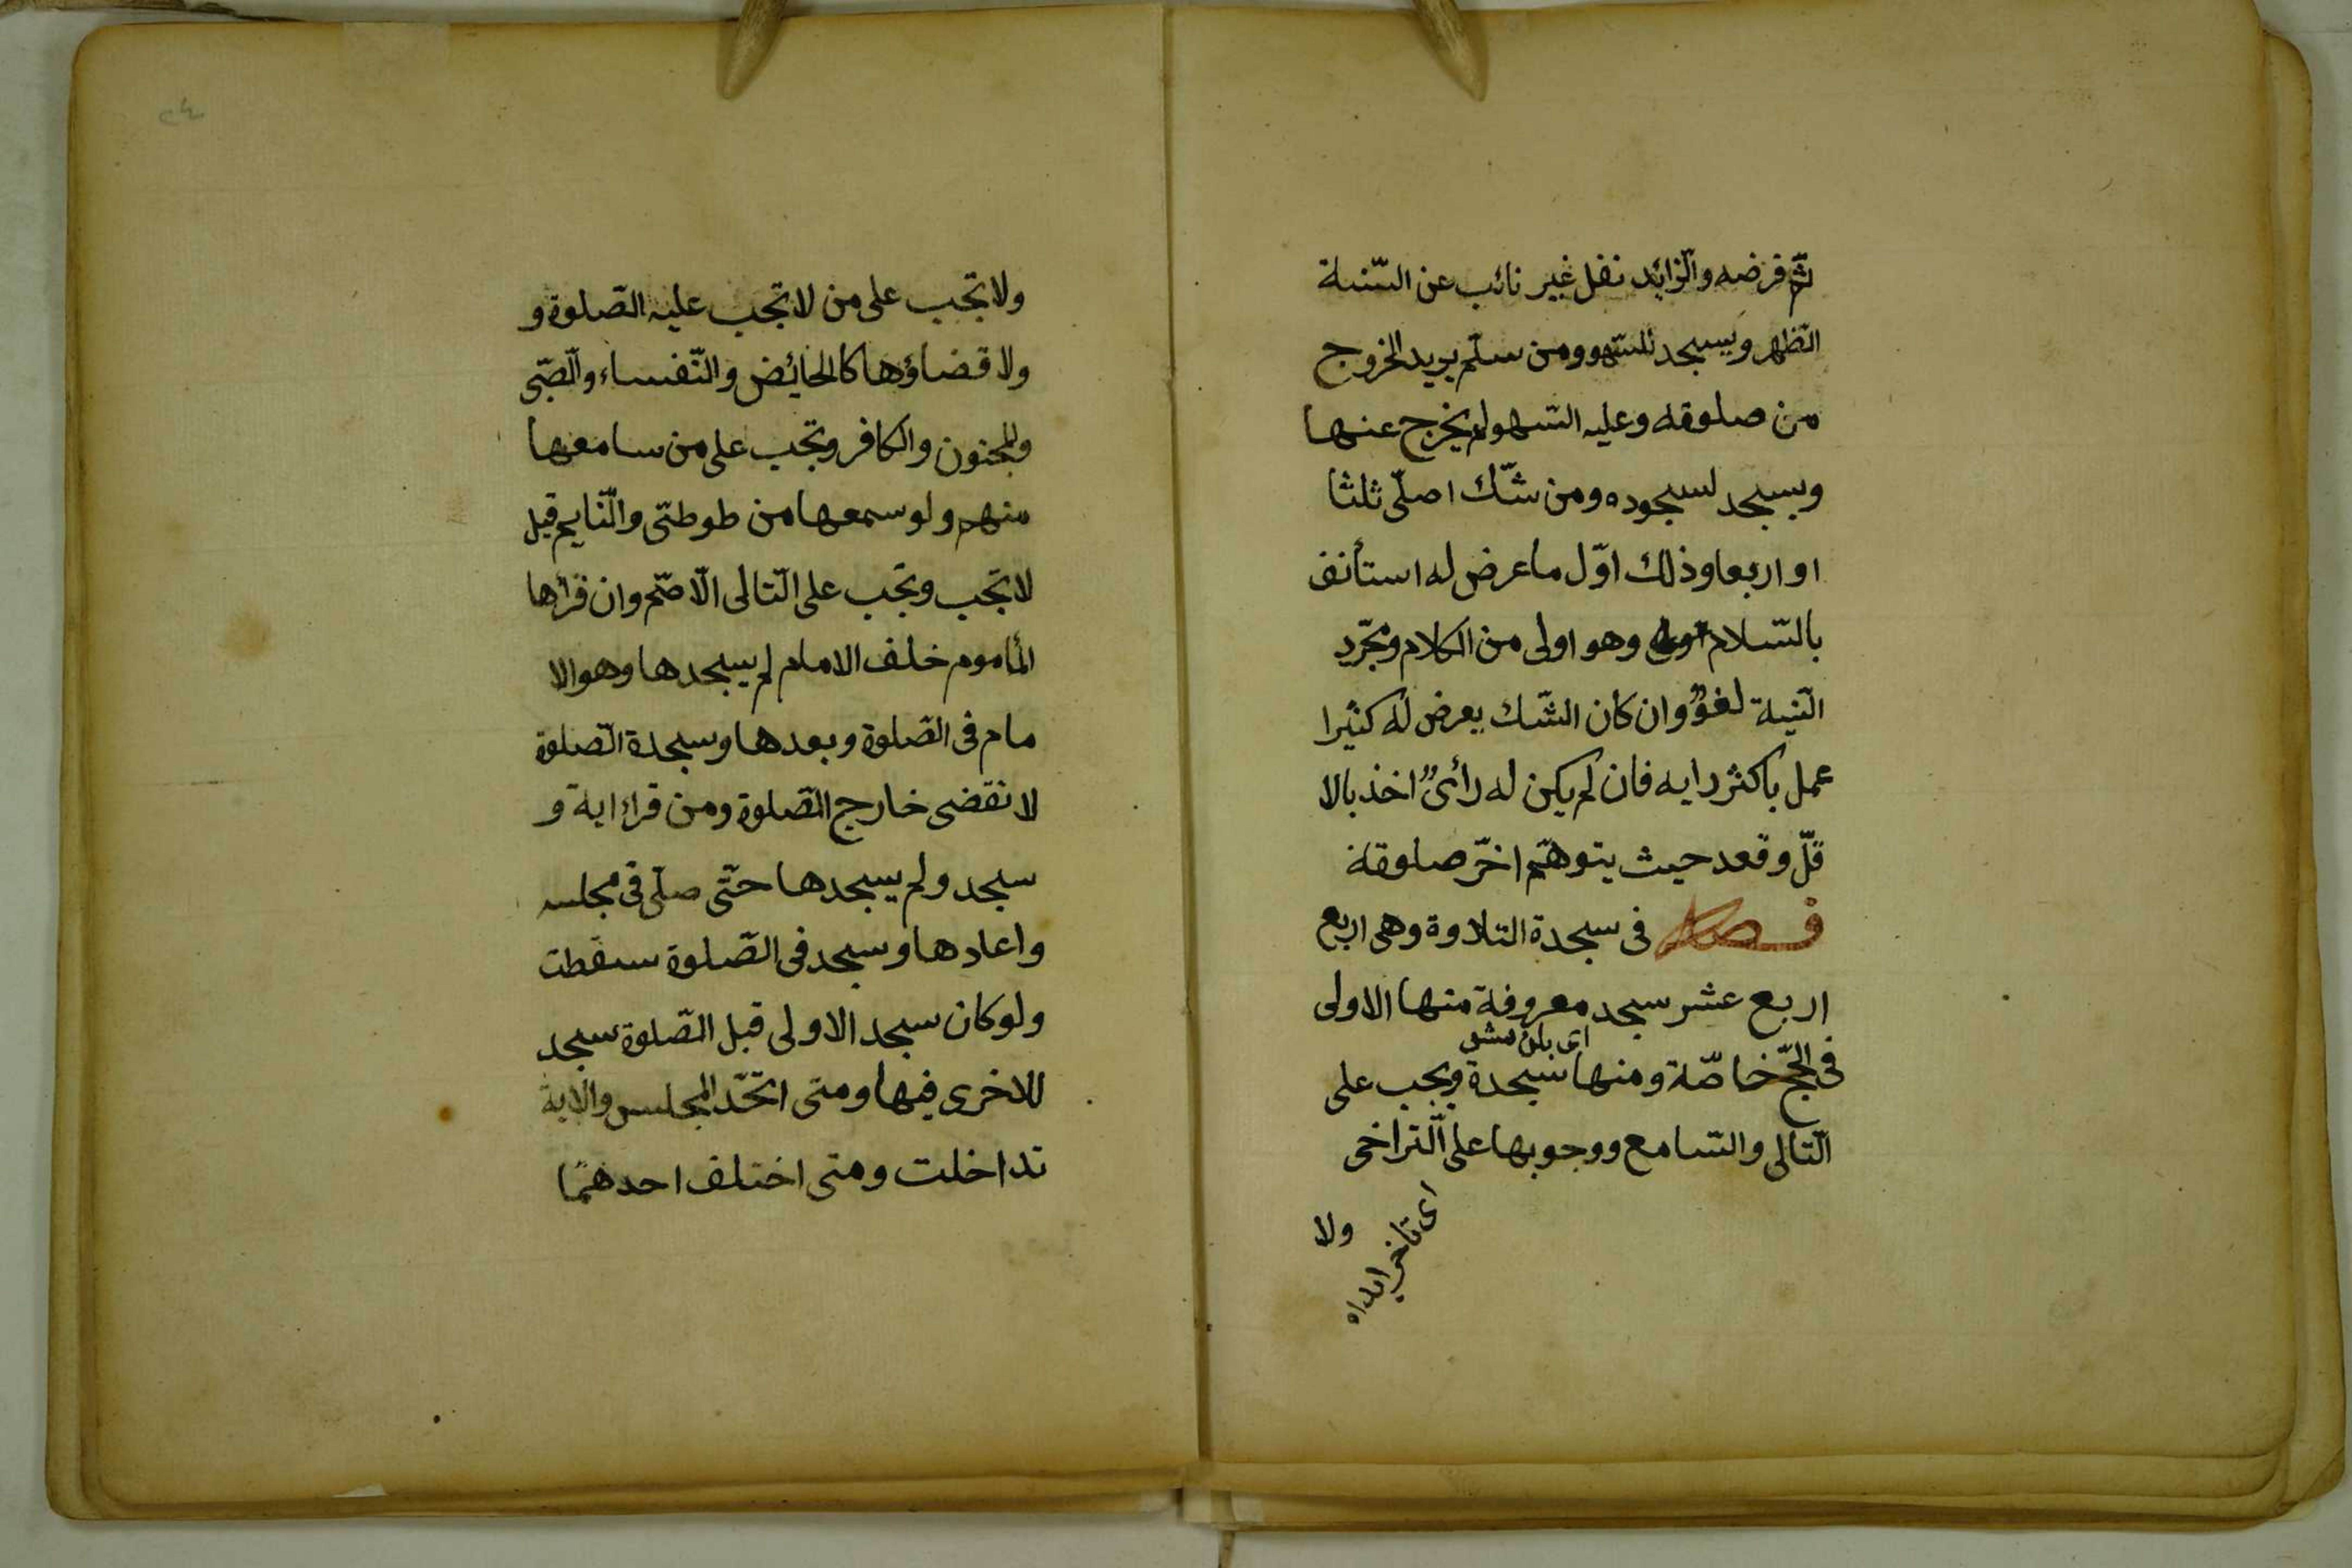 ثمّ فرضه والزّائد نفل غير نائب عن السّنة
الظّهر ويسجد للسّهو ومن سلّم يريد الخروج
من صلوقه وعليه السّهو لم يخرج عنها
ويسجد لسجوده ومن شكّ اصلّى ثلثا
او اربعا وذلك اوّل ما عرض له استأنف
بالسّلام وهو اولى من الكلام ومجرّد
النّية لغوٌ وان كان الشّك يعرض له كثيرا
عمل باكثر رايه فان لم يكن له رأىٌ اخذ بالا
قلّ وقعد حيث يتوهّم اخّر صلوقة
فصل فى سجدة التلاوة وهى اربع
اربع عشر سجد معروفة منها الاولى
فى الحجّ خاصّة ومنها سجدة ويجب على
التّالى والسّامع ووجوبها على التّراخى
ولا
ولا تجب على من لا تجب عليه الصّلوة و
ولا قضاؤها كالحائض والنّفساء والصّبى
والمجنون والكافر وتجب على من سامعها
منهم ولو سمعها من طوطتى والنّايم قيل
لا تجب وتجب على التّالى الّاصمّ وان قرأها
المأموم خلف الامام لم يسجدها وهو الا
مام فى الصّلوة وبعدها وسجدة الصّلوة
لا تقضى خارج الصّلوة ومن قرا اية و
سجد ولم يسجدها حتّى صلّى فى مجلسه
واعادها وسجد فى الصّلوة سقطت
ولو كان سجد الاولى قبل الصّلوة سجد
للاخرى فيها ومتى اتّحد المجلس والاية
تداخلت ومتى اختلف احدهما